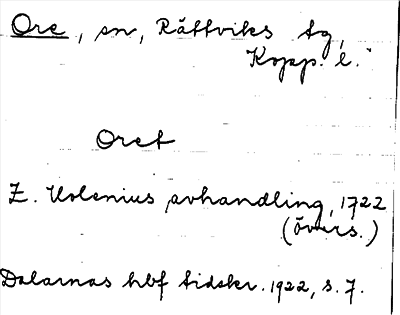 Ore, sn, Rättviks tg,
Kopp. l.
Oret
Z. Holenius avhandling, 1722
(övers.)
Dalarnas hbf tidskr. 1922, s. 7.